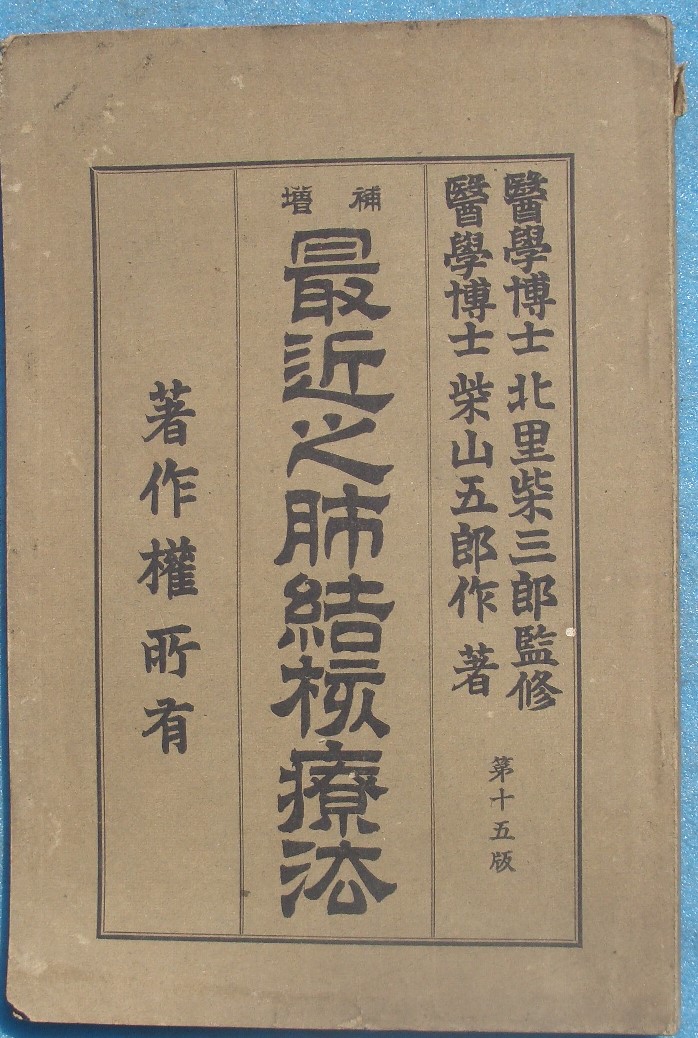 醫學博士 北里柴三郎監修
醫學博士 柴山五郎作 著
第十五版
補增
最近之肺結核療法
著作權所有